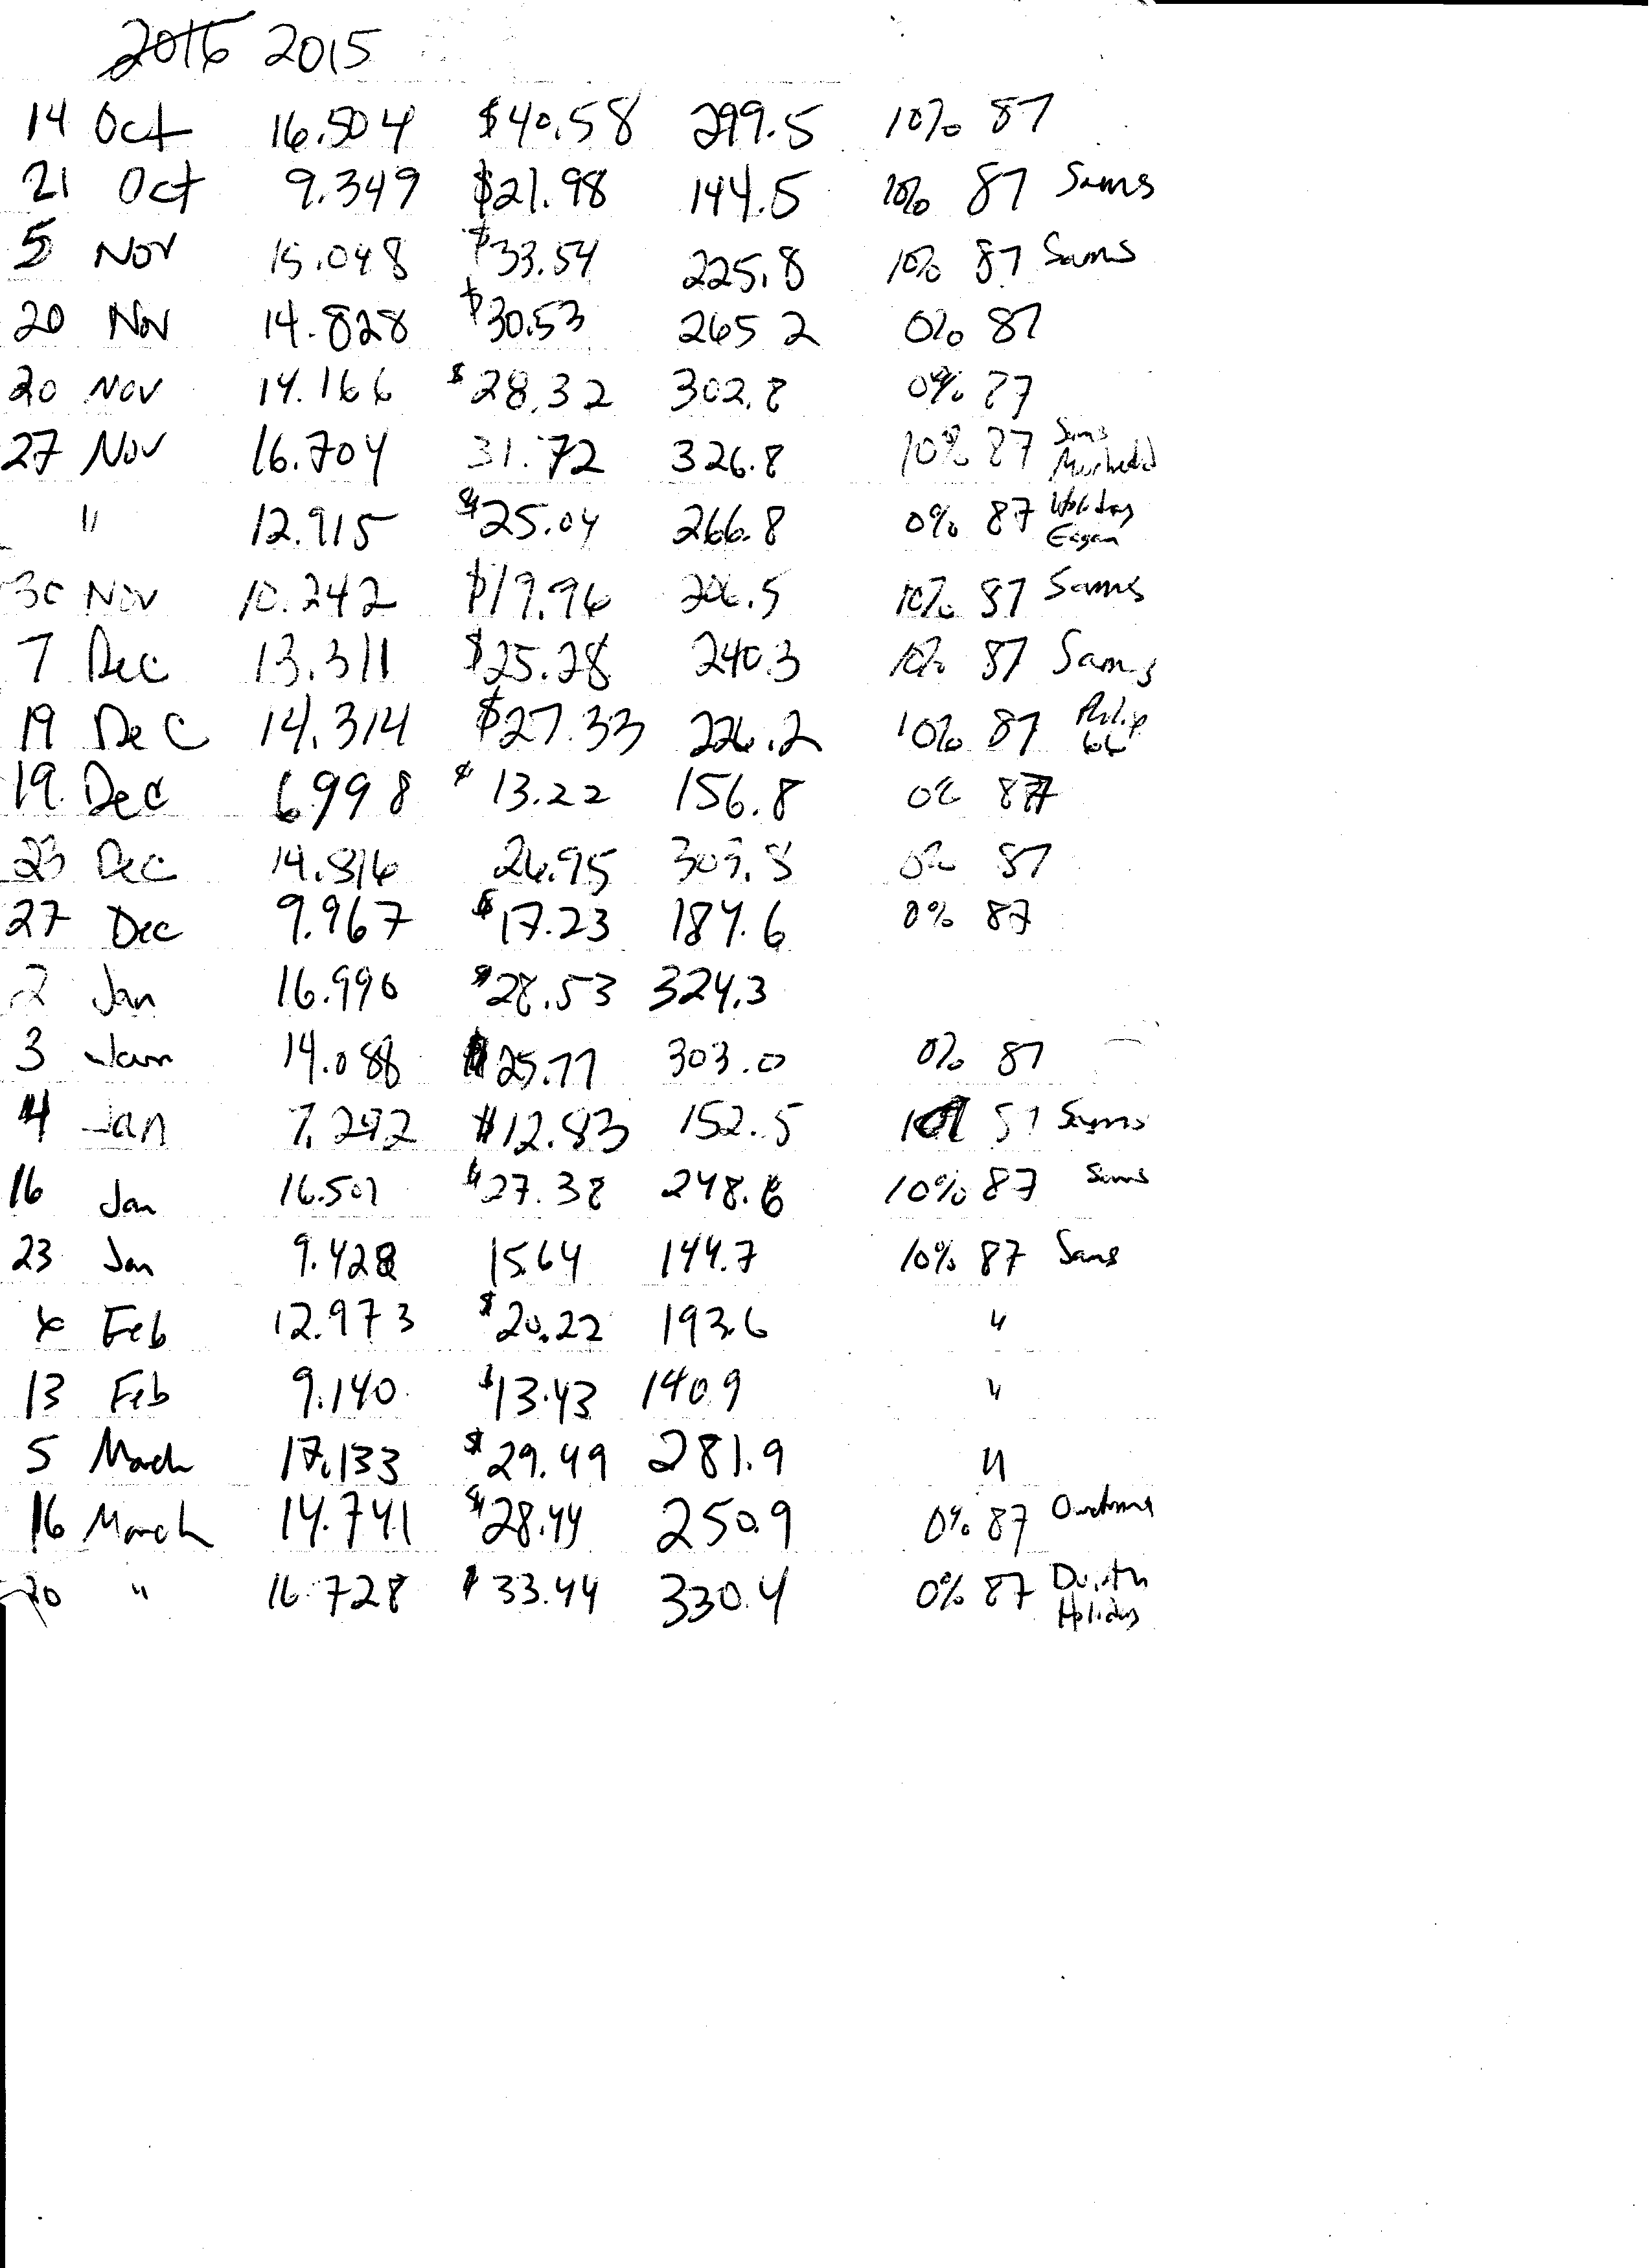 2016 2015
14 Oct 16.504 $40.58 299.5 10% 87
21 Oct 9.349 $21.98 144.5 10% 87 Sams
5 Nov 15.048 $33.54 225.8 10% 87 Sams
20 Nov 14.828 $30.53 265 2 0% 87
20 Nov 14.166 $28.32 302.8 0% 87
27 Nov 16.704 31.72 326.8 10% 87 Sams
" 12.915 $25.04 266.8 0% 87 Holiday Eagan
30 Nov 10.242 $19.96 206.5 10% 87 Sams
7 Dec 13.311 $25.28 240.3 10% 87 Sams
19 Dec 14.314 $27.33 226.2 10% 87 Philip 66
19 Dec 6.998 $13.22 156.8 0% 87
23 Dec 14.816 26.95 303.8 0% 87
27 Dec 9.967 $17.23 184.6 0% 87
2 Jan 16.996 $28.53 324.3
3 Jan 14.088 $25.77 303.0 0% 87
4 Jan 7.292 $12.83 152.5 10% 87 Sams
16 Jan 16.501 $27.38 248.6 10% 87 Sams
23 Jan 9.428 15.64 144.7 10% 87 Sams
Feb 12.973 $20.22 193.6 "
13 Feb 9.140 $13.43 140.9 "
5 March 17.133 $29.49 281.9 "
16 March 14.741 $28.44 250.9 0% 87
20 " 16.728 $33.44 330.4 0% 87 Duluth Holiday